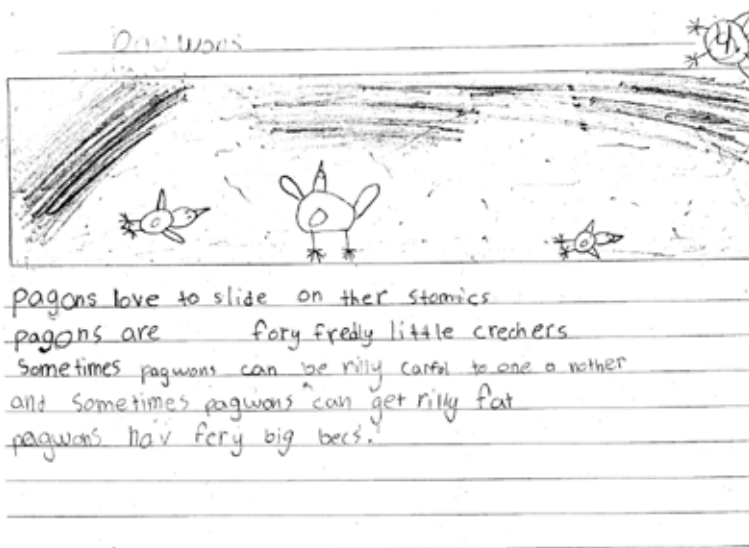 Pagwons
4.
pagons love to slide on ther stomics
pagons are fory fredly little crechers
Sometimes pagwons can be rilly carfol to one a nother
and sometimes pagwons can get rilly fat
pagwons hav fery big becs.